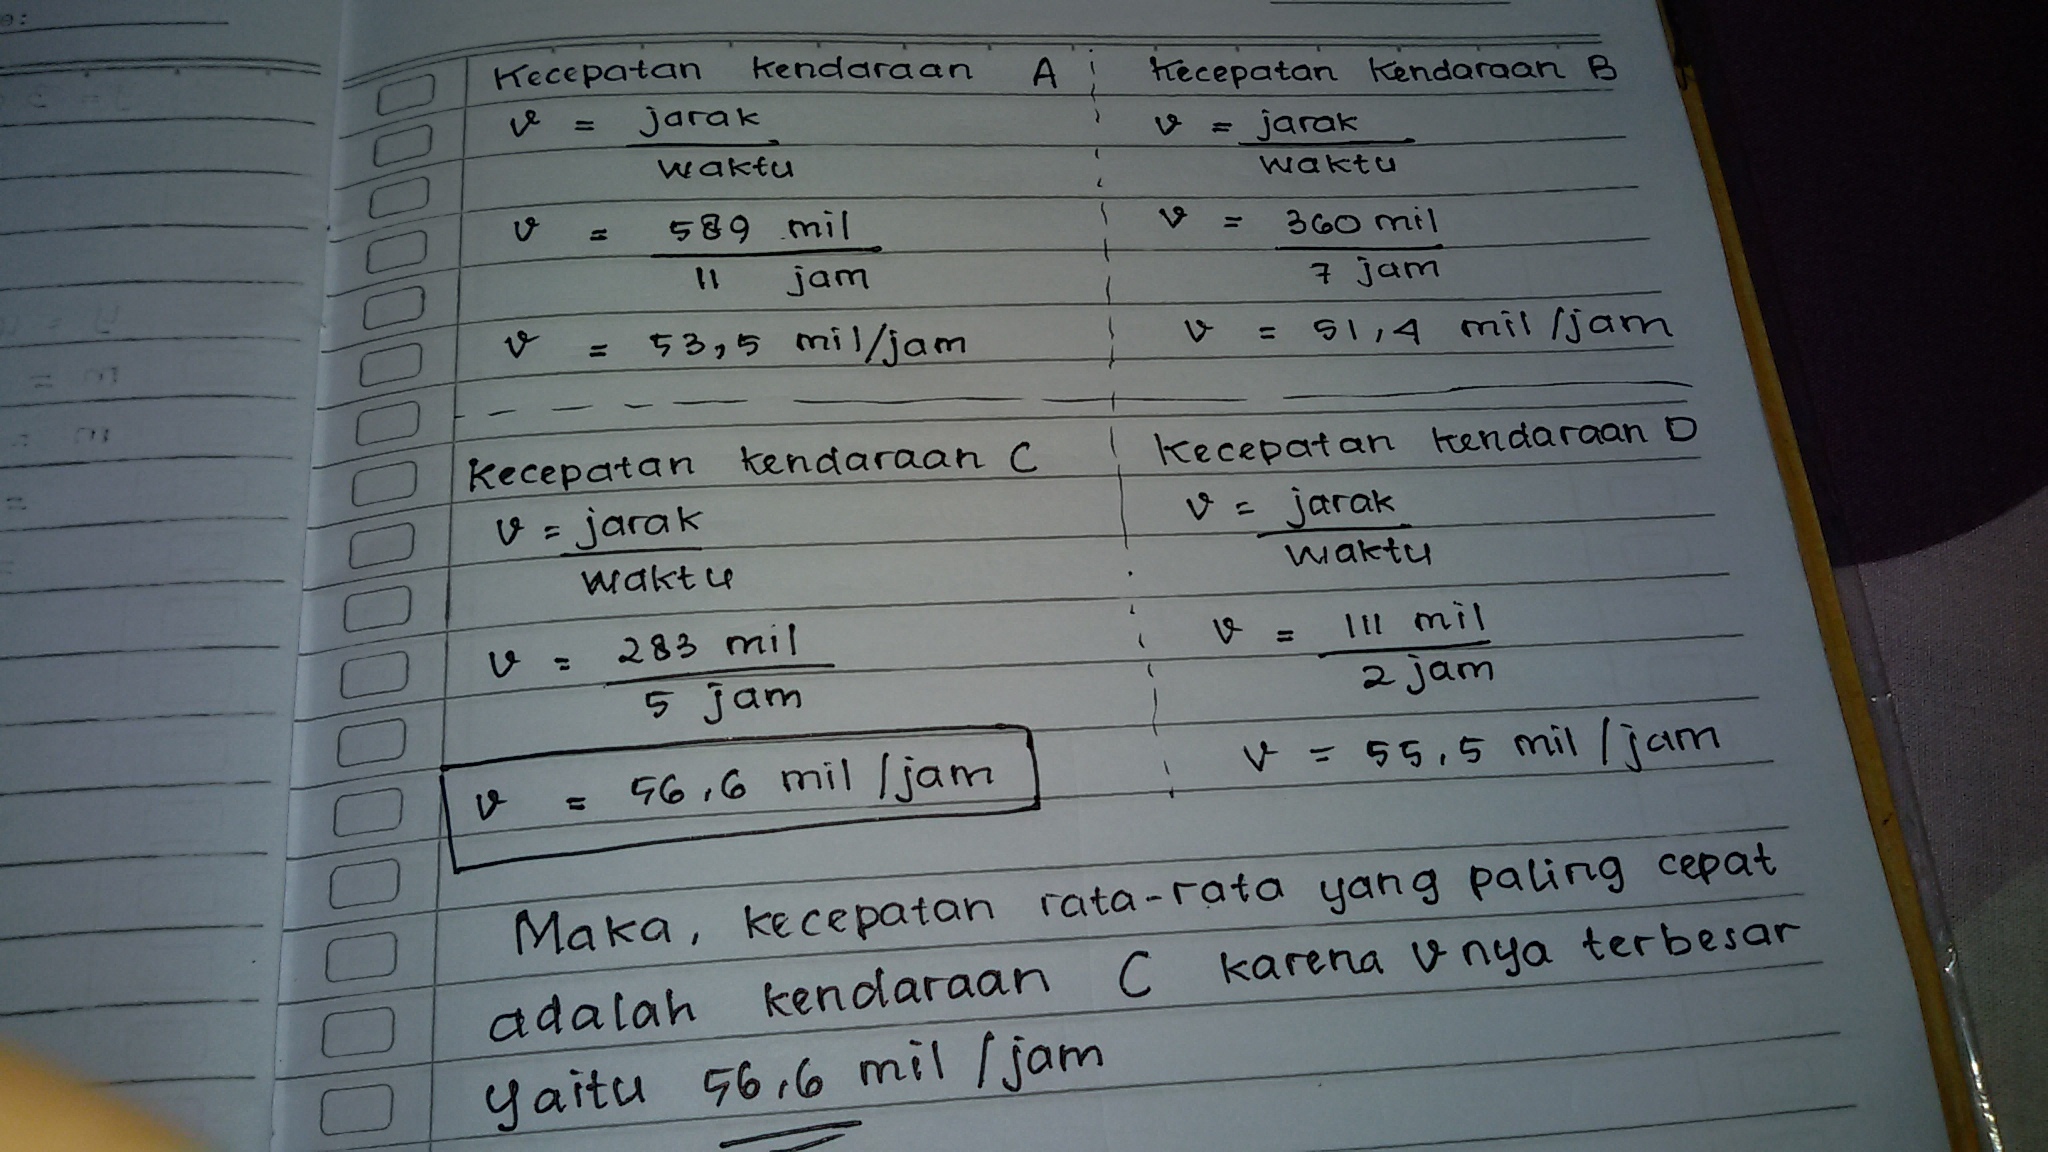 Kecepatan kendaraan A
v = jarak
waktu
v = 589 mil
11 jam
v = 53,5 mil/jam
Kecepatan kendaraan B
v = jarak
waktu
v = 360 mil
7 jam
v = 51,4 mil/jam
Kecepatan kendaraan C
v = jarak
waktu
v = 283 mil
5 jam
v = 56,6 mil/jam
Kecepatan kendaraan D
v = jarak
waktu
v = 111 mil
2 jam
v = 55,5 mil/jam
Maka, kecepatan rata-rata yang paling cepat
adalah kendaraan C karena v nya terbesar
yaitu 56,6 mil/jam